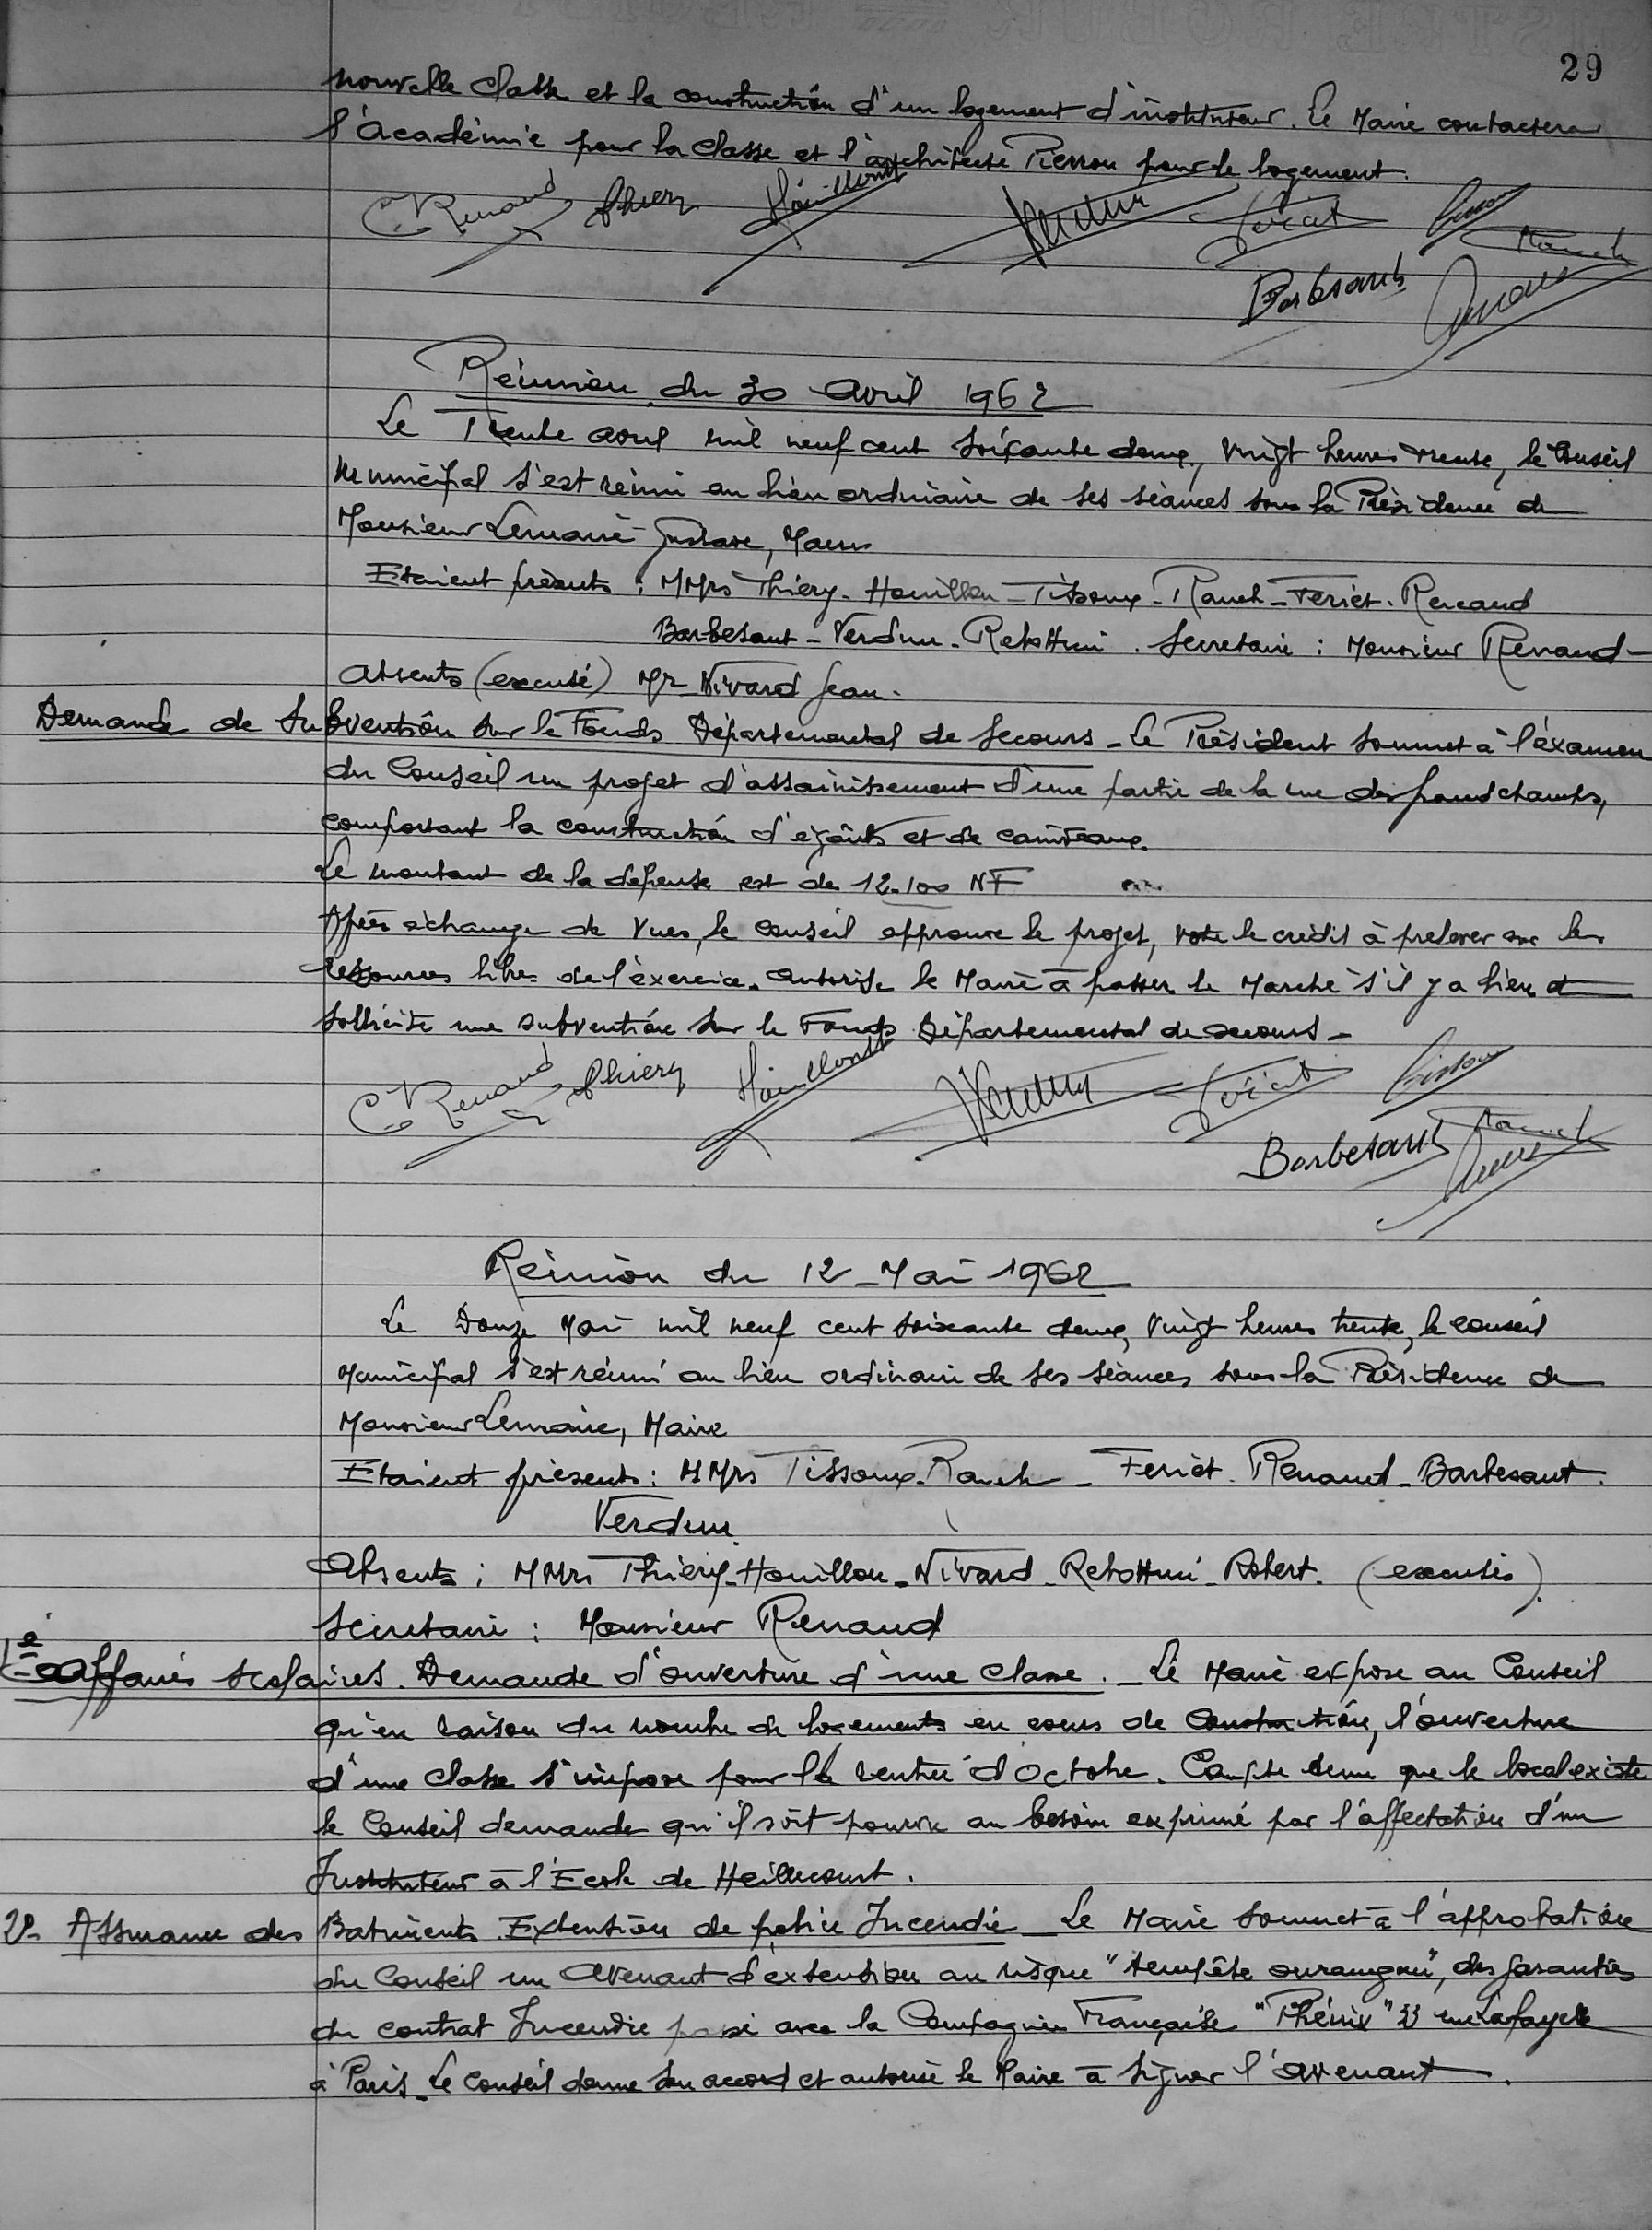 29
nouvelle classe et la construction d'un logement d'instituteur. Le Maire contactera
l'Académie pour la classe et l'architecte Pierron pour le logement.
C Renaud Thiery Houillon Verdun Feriet Tissoux
Rauch
Barbesant
Réunion du 30 Avril 1962
Le Trente avril mil neuf cent soixante deux, vingt heures trente, le Conseil
Municipal s'est réuni au lieu ordinaire de ses séances sous la Présidence de
Monsieur Lemaire Gustave, Maire
Etaient présents : MMrs Thiery - Houillon - Tissoux - Rauch - Feriet - Renaud
Barbesant - Verdun - Rebottini. Secretaire : Monsieur Renaud -
Absents (excusé) Mr Nivard Jean.
Demande de Subvention sur le Fonds Départemental de Secours - Le Président soumet à l'éxamen
du Conseil un projet d'assainissement d'une partie de la rue des Grandschamps,
comportant la construction d'égoûts et de caniveaux.
Le montant de la dépense est de 12.100 NF
Après échange de vues, le conseil approuve le projet, vote le crédit à prelever sur les
ressources libres de l'éxercice. autorise le Maire à passer le Marché s'il y a lieu et
sollicite une subvention sur le Fonds Départemental de secours -
C Renaud Thiery Houillon Verdun Feriet Tissoux
Rauch
Barbesant
Réunion du 12 Mai 1962
Le Douze Mai mil neuf cent soixante deux, vingt heures trente, le conseil
Municipal s'est réuni au lieu ordinaire de ses séances sous la Présidence de
Monsieur Lemaire, Maire
Etaient présents : MMrs Tissoux - Rauch - Feriet - Renaud - Barbesant.
Verdun
Absents : MMrs Thiery - Houillon - Nivard - Rebottini - Robert. (excusés).
Secretaire : Monsieur Renaud
1e Affaires Scolaires. Demande d'ouverture d'une classe. - Le Maire expose au Conseil
qu'en raison du nombre de logements en cours de construction, l'ouverture
d'une classe s'impose pour la rentrée d'Octobre. Compte tenu que le local existe
le Conseil demande qu'il soit pourvu au besoin exprimé par l'affectation d'un
Instituteur à l'Ecole de Heillecourt.
2e Assurance des Batiments. Extention de police Incendie - Le Maire soumet à l'approbation
du Conseil un avenant d'extension au risque "tempête ouragan", des garanties
du contrat Incendie passé avec la Compagnie Française "Phénix" 33 rue Lafayette
à Paris - Le Conseil donne son accord et autorise le Maire à signer l'avenant.